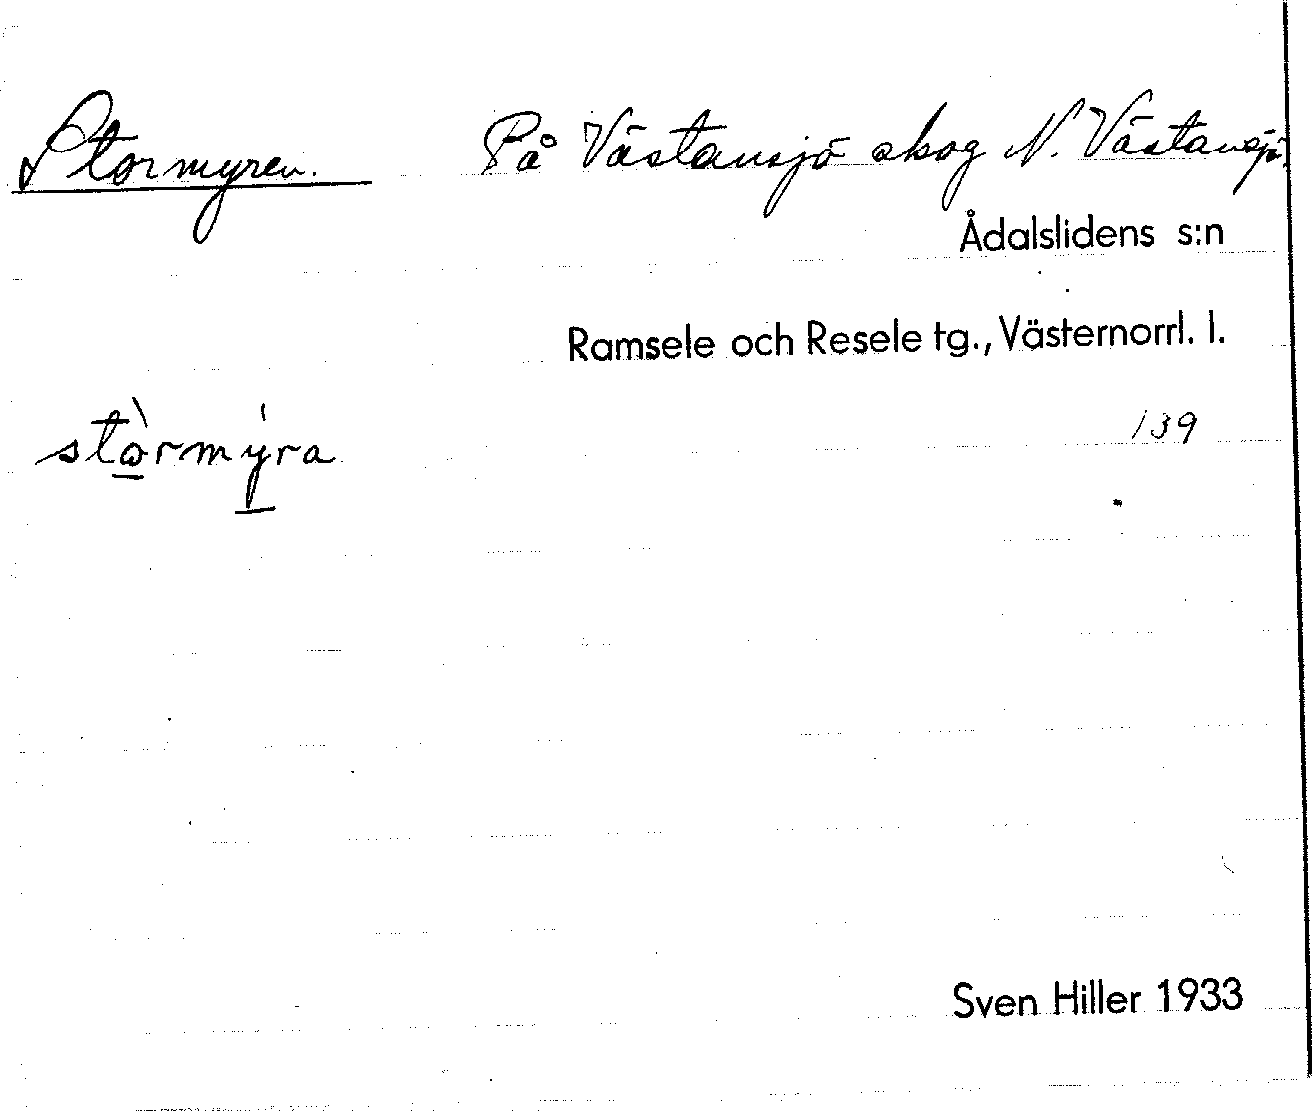 Stormyren. På Västansjö skog N. Västansjö.
Ådalslidens s:n
Ramsele och Resele tg., Västernorrl. l.
139
stòrmýra
Sven Hiller 1933